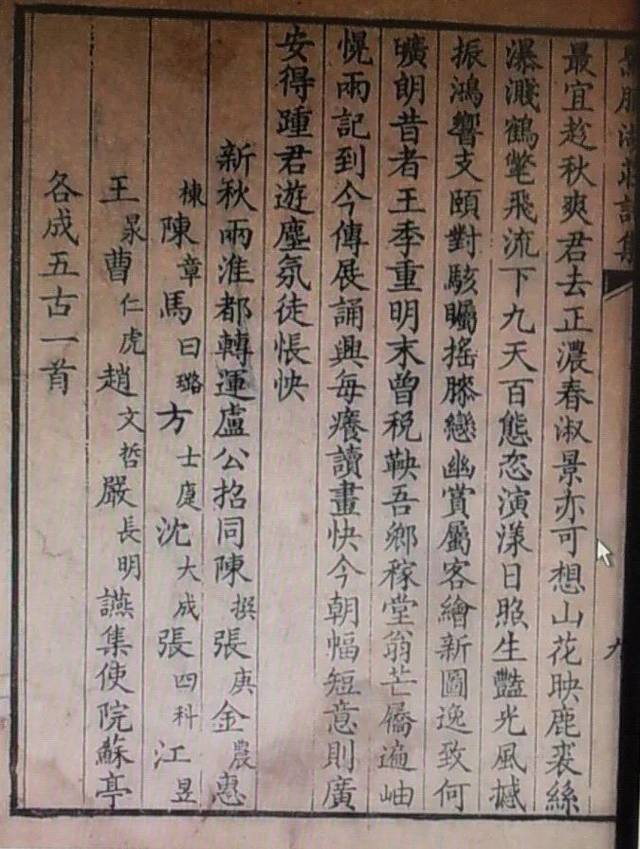 最宜趁秋爽君去正濃春淑景亦可想山花映鹿裘絲
瀑濺鶴氅飛流下九天百態恣演漾日照生豔光風撼
振鴻響支頤對駭矚搖膝戀幽賞屬客繪新圖逸致何
曠朗昔者王季重明末曾稅鞅吾鄉稼堂翁芒屩遍岫
幌兩記到今傳展誦興每癢讀畫快今朝幅短意則廣
安得踵君遊塵氛徒悵怏
新秋雨淮都轉運盧公招同陳撰張庚金農惠
棟陳章馬曰璐方士庹沈大成張四科江昱
王㫤曹仁虎趙文哲嚴長明讌集使院蘇亭
各成五古一首
九